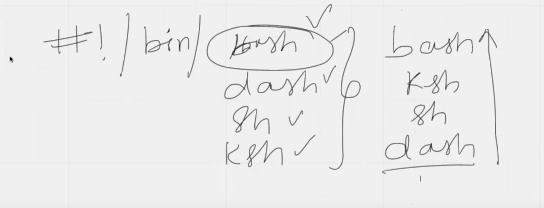 #!/bin/bash ✓
dash ✓
sh ✓
ksh ✓
bash
ksh
sh
dash